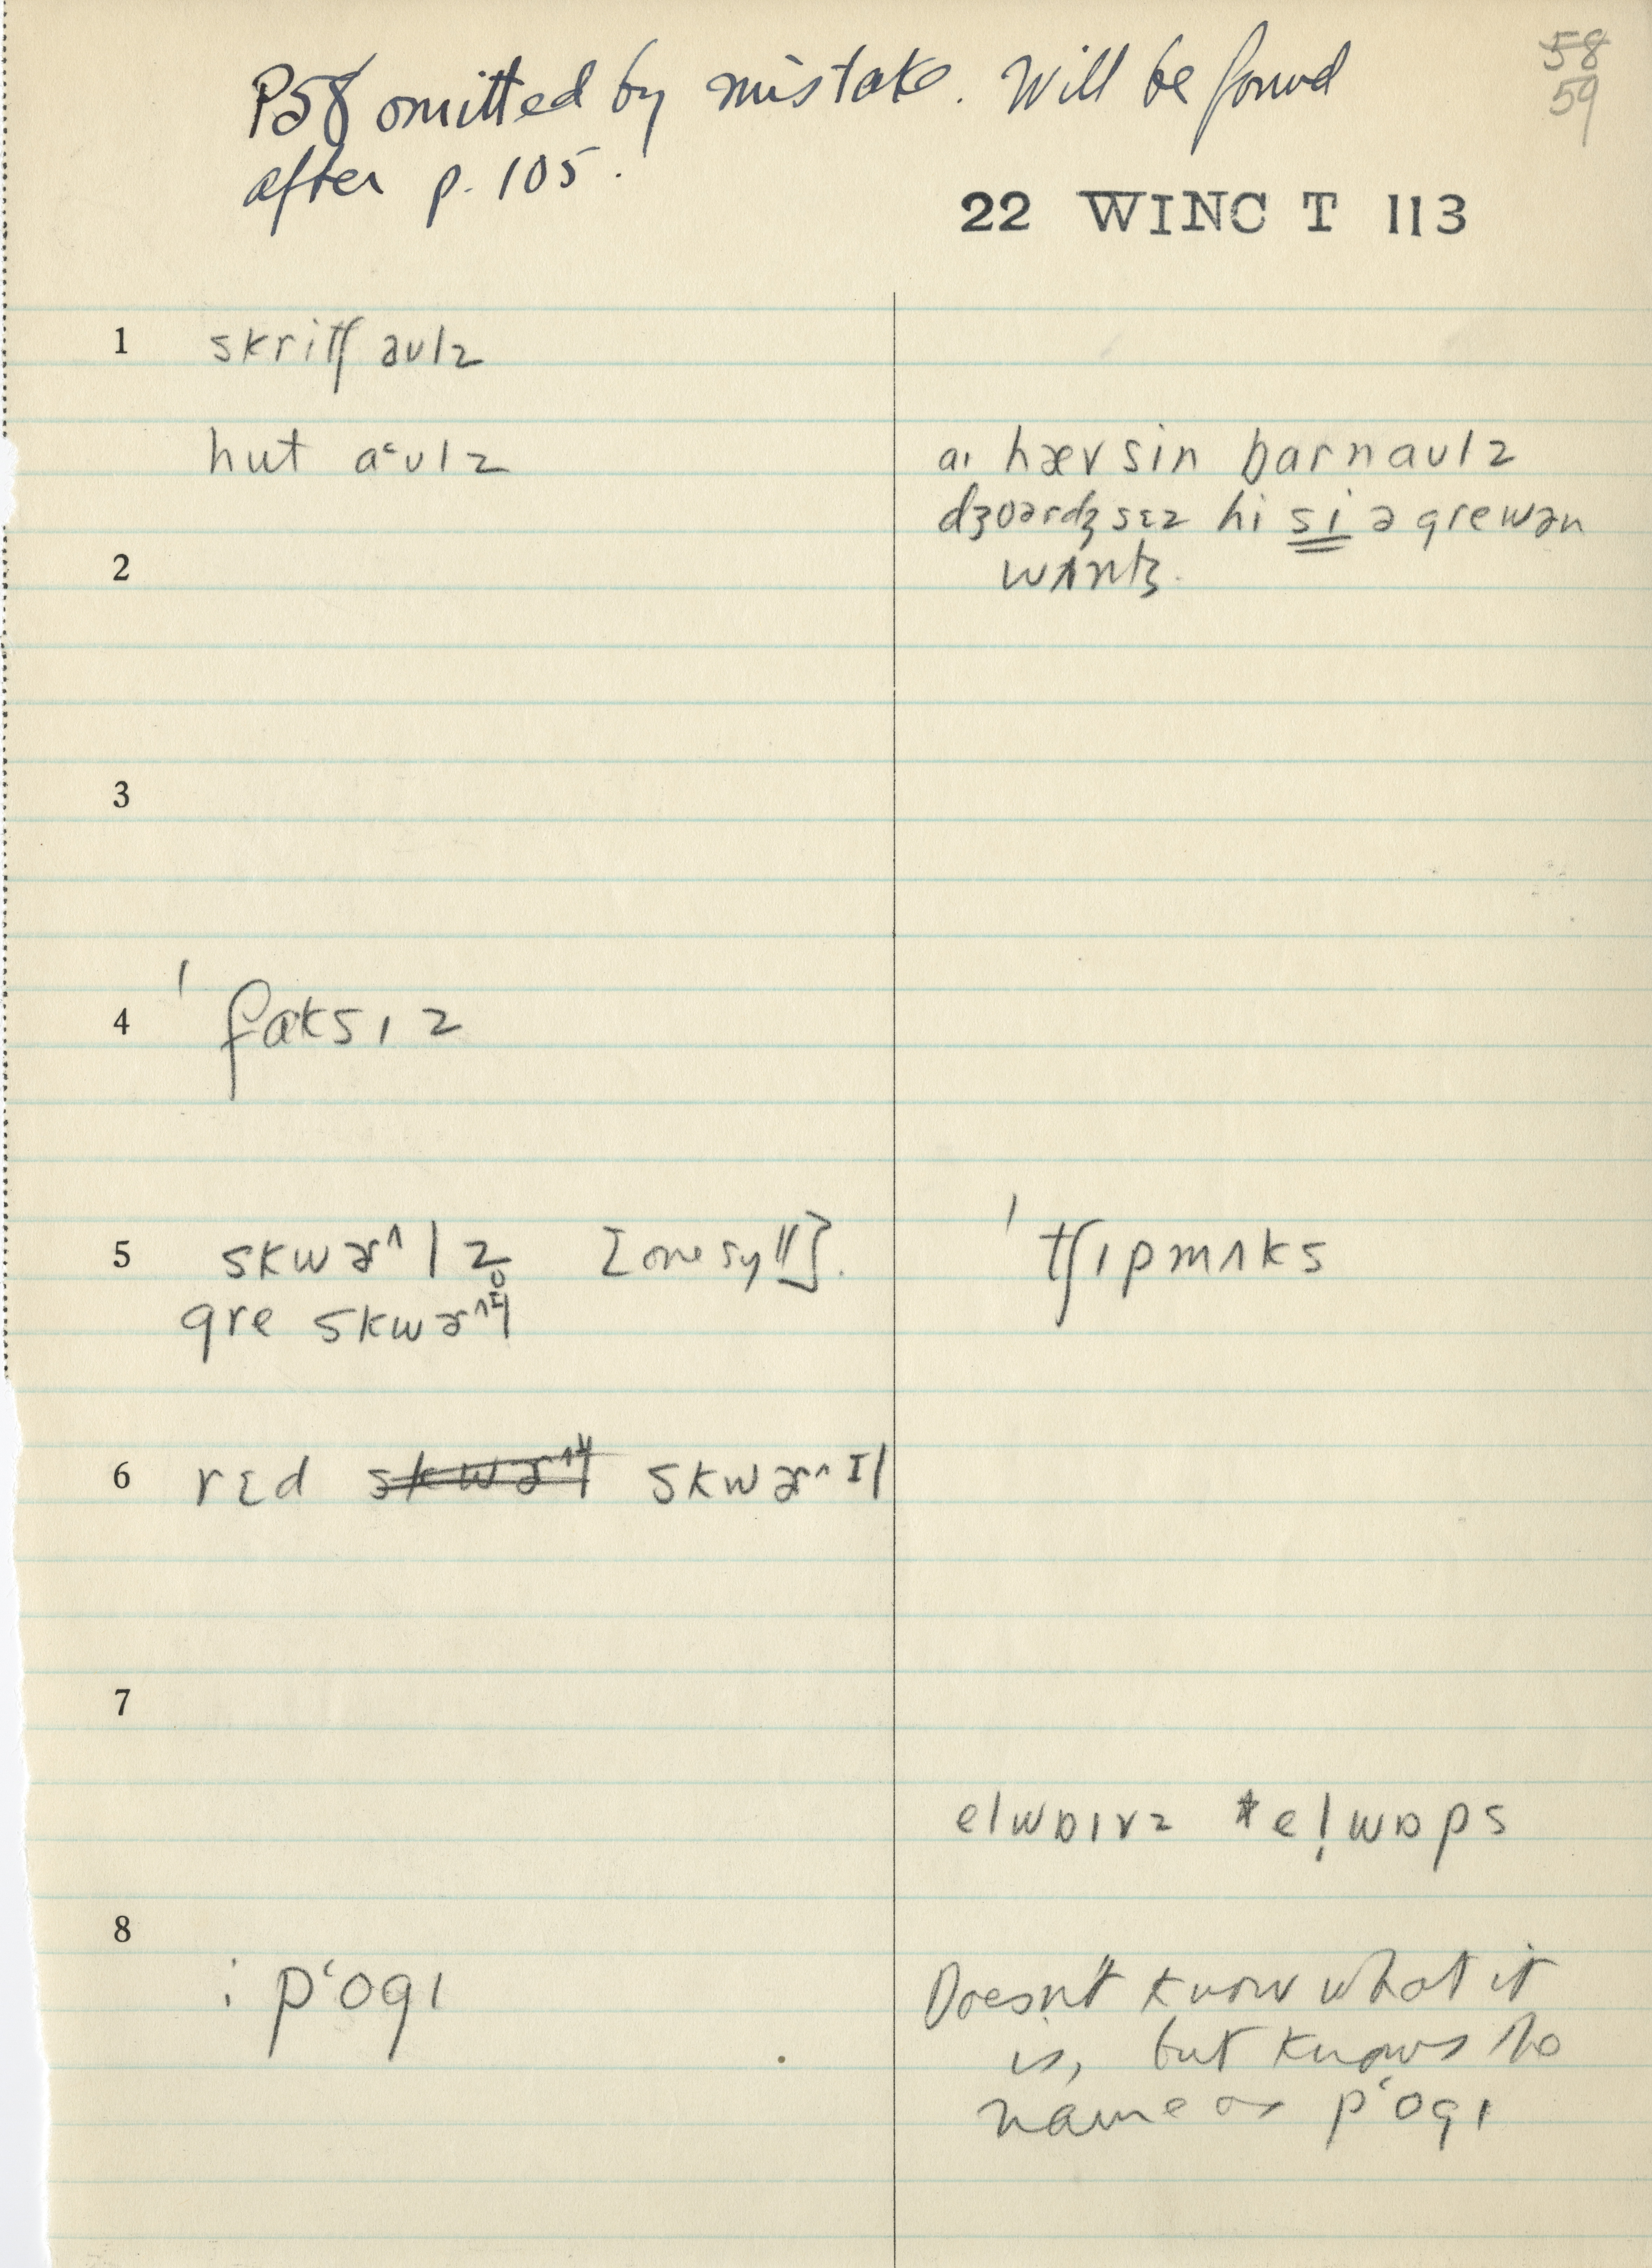 58
59
P58 omitted by mistake. Will be found
after p. 105.
22 WINC T 113
1 skritʃ aulz
hut aʿulz
aɪ hævsin barnaulz
dʒoərdʒ sɛz hi si ə grewən
2
wʌntʒ.
3
4 ˈfɑksɪz
5 skwɚ^lz [one syll].
ˈtʃɪpmʌks
gre skwɚ^
6 rɛd skwɚ^ɪl
7
elwɒɪvz *el̩wɒps
8
: pʿogɪ
Doesn't know what it
is, but knows the
name as pʿogɪ